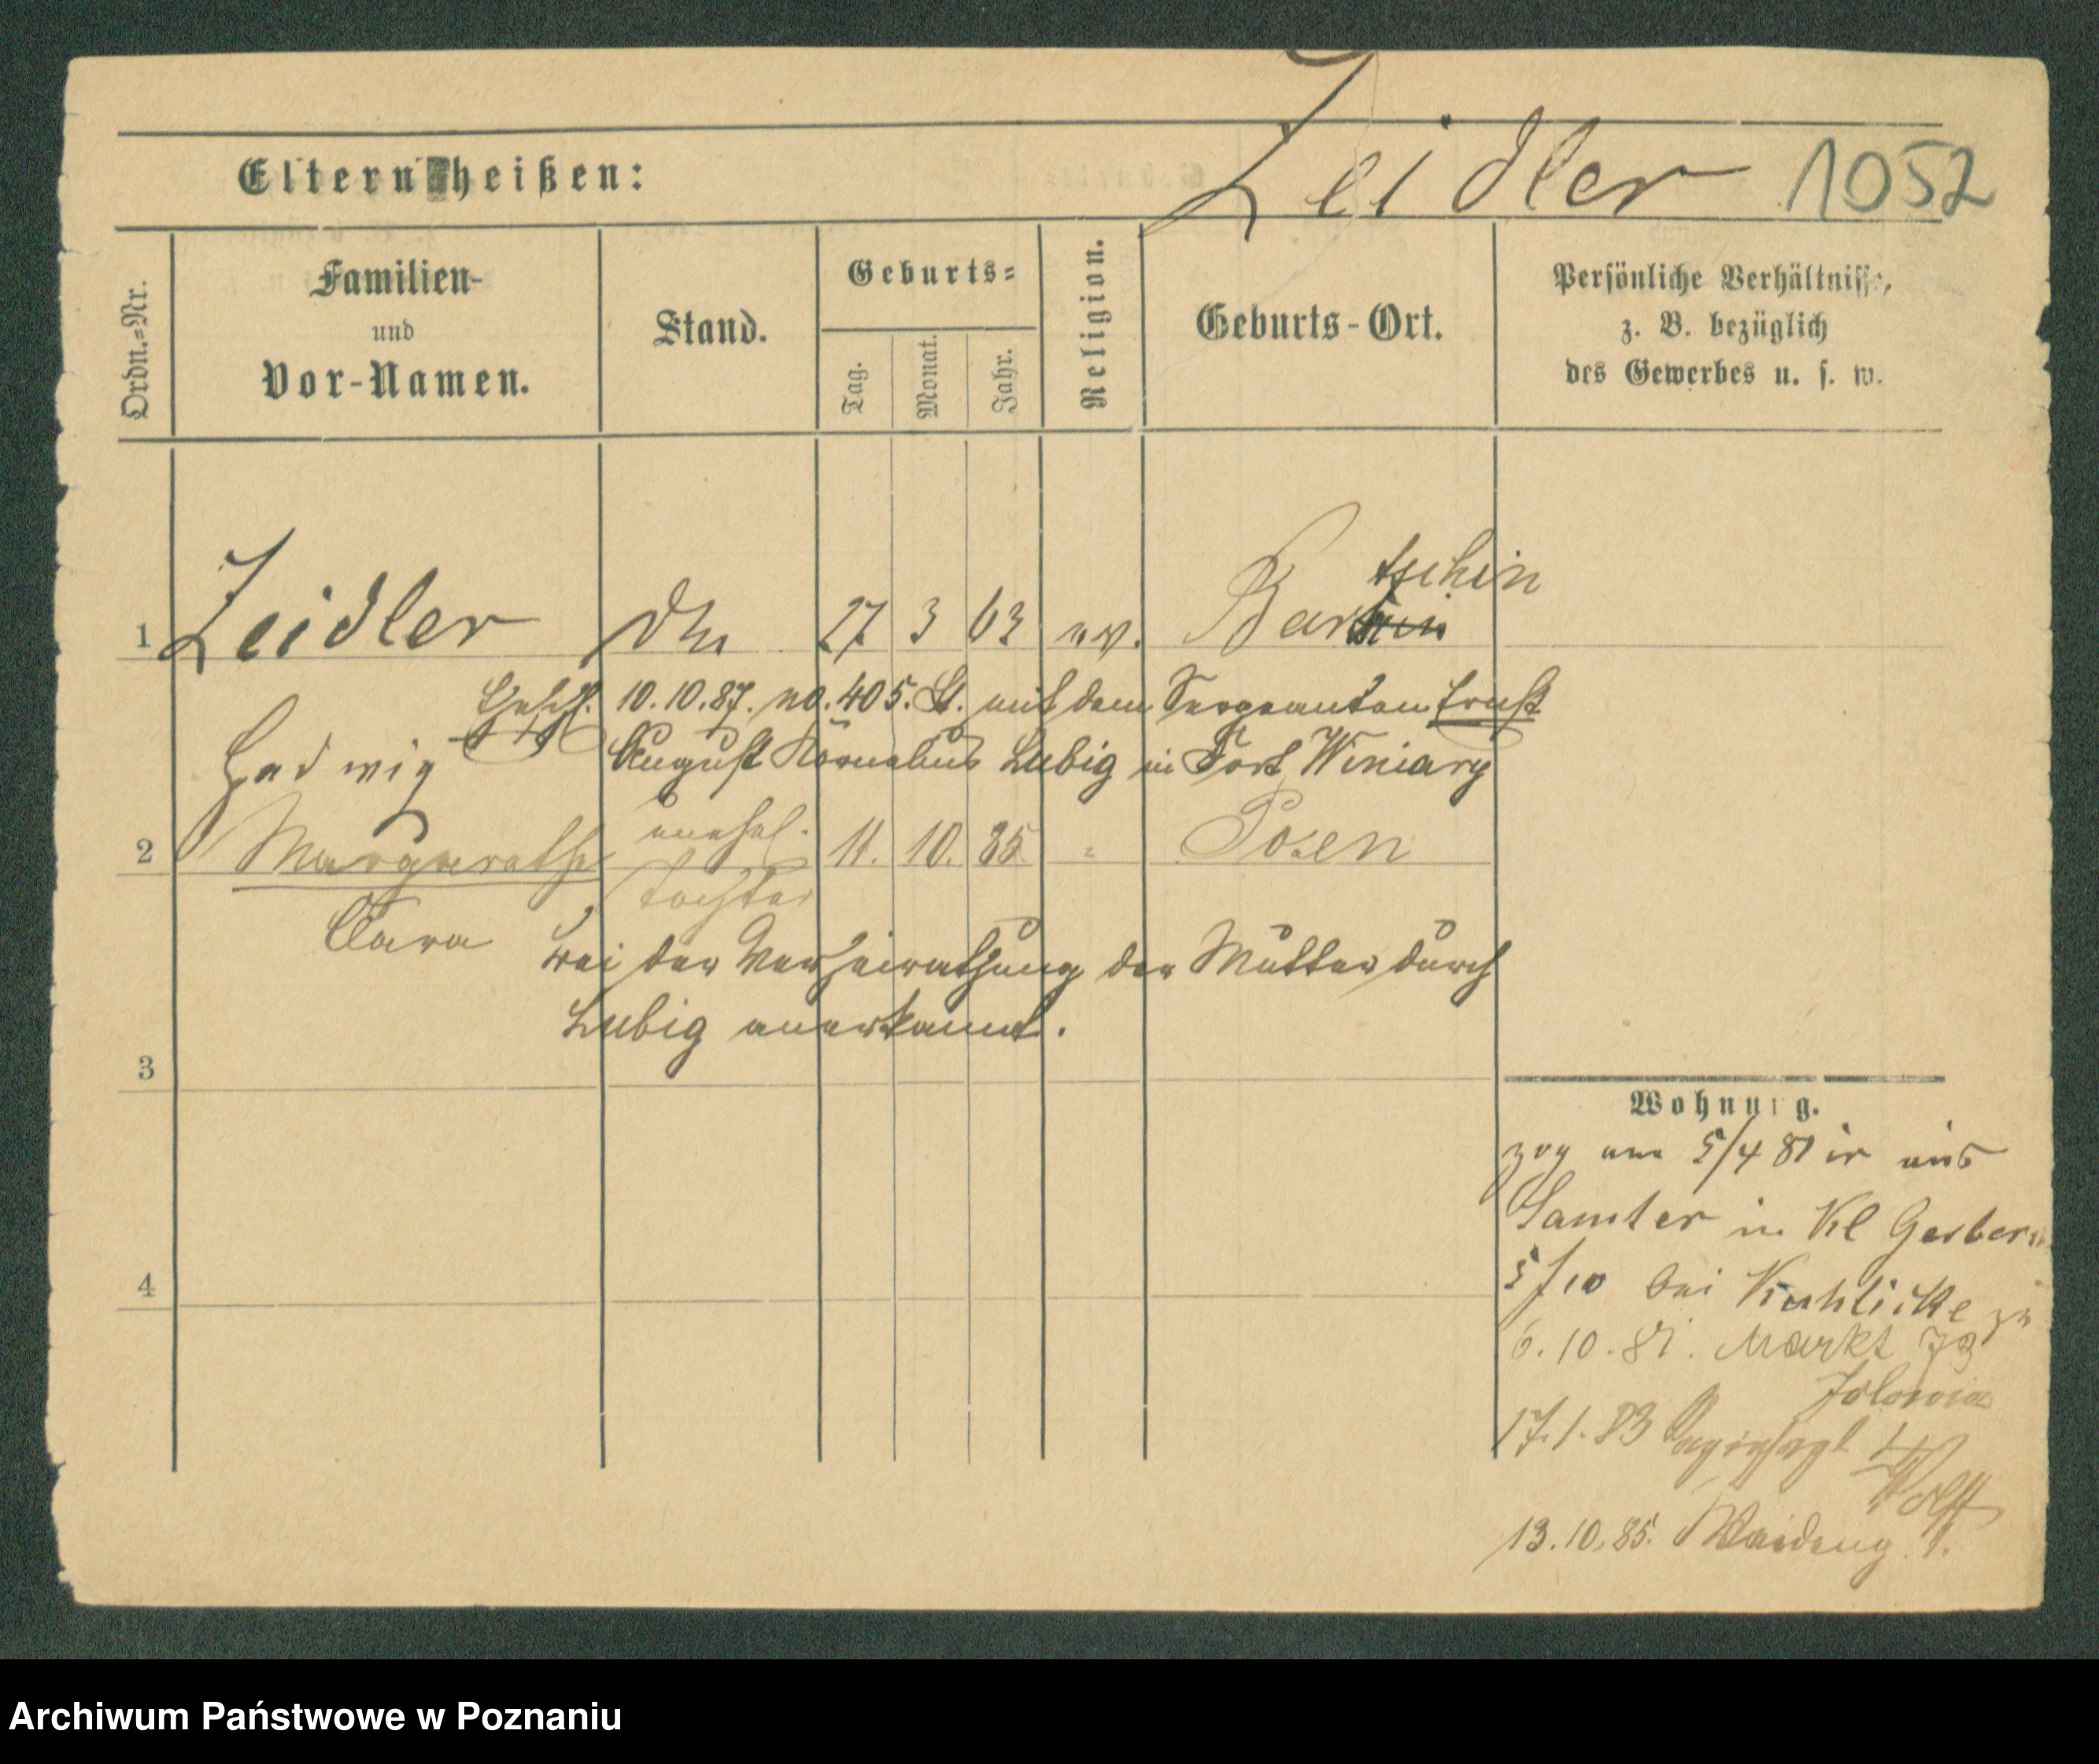 Zeidler 1052
Eltern heißen:
Ordn.=Nr.
Familien-
und
Vor-Namen.
Stand.
Geburts=
Tag.
Monat.
Jahr.
Religion.
Geburts-Ort.
Persönliche Verhältnisse,
z. B. bezüglich
des Gewerbes u. s. w.
tschin
1 Zeidler 27 3 63 ev. Bar
10.10.87. no. 405. St. mit dem Sergeanten Ernst
Hedwig August Kornelius Lubig in Fort Winiary
2 Margarethe unehel. 11. 10. 85 " Posen
Tochter
Clara
bei der Verheirathung der Mutter durch
Lubig anerkannt.
3
4
Wohnung.
zog am 5/4 81 in aus
Samter in Kl Gerber
5/10 bei Kuhlicke
6.10.81. Markt 73
17.1.83 4
Wolff
13.10.85. 1.
Archiwum Państwowe w Poznaniu